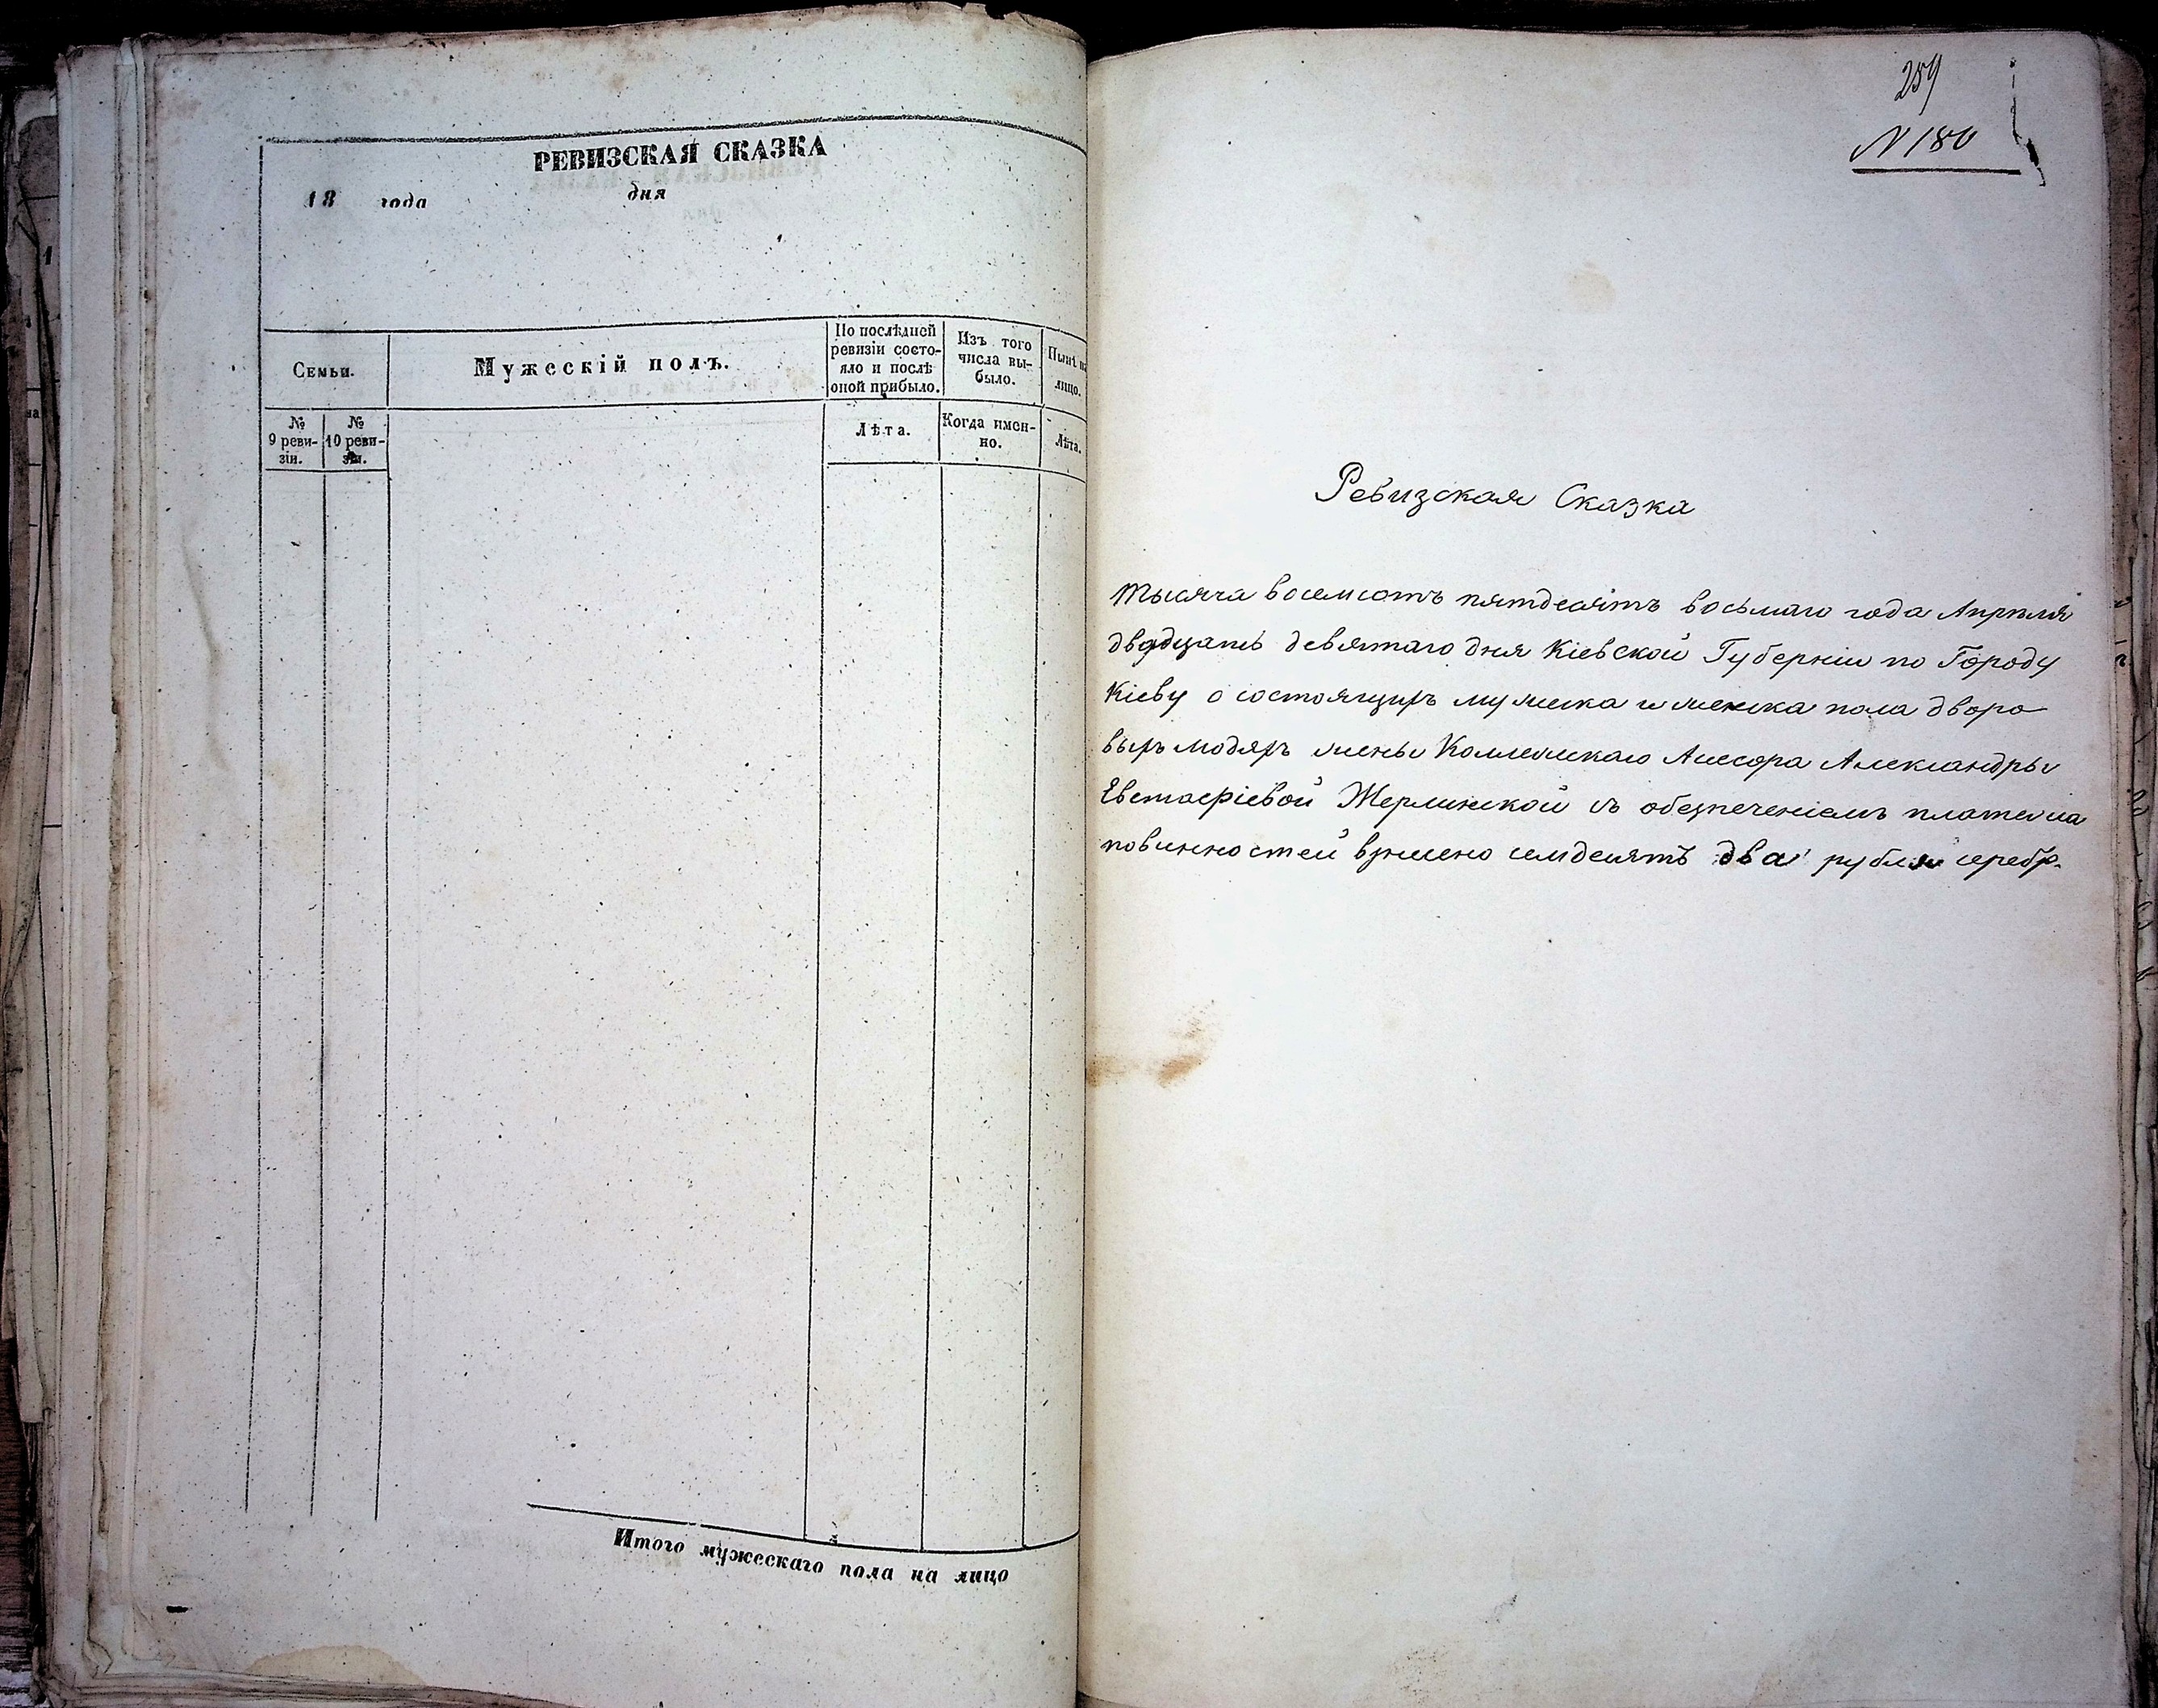 РЕВИЗСКАЯ СКАЗКА
18 года дня
Семьи.
Мужескій полъ.
По послѣдней
ревизіи состо-
яло и послѣ
оной прибыло.
Изъ того
числа вы-
было.
лицо.
№
9 реви-
зіи.
№
10 реви-
зіи.
Лѣта.
Когда имен-
но.
Лѣта.
Итого мужескаго пола на лицо
259
N 180
Ревизская Сказка
Тысяча восемсотъ пятдесятъ восьмаго года Апрѣля
двадцать девятаго дня Кіевской Губерніи по Городу
Кіеву о состоящихъ мужска и женска пола дворо
выхъ людяхъ жены Коллежскаго Ассесора Александры
Евстафіевой Жерлинской съ обезпеченіемъ платежа
повинностей взнесено семдесятъ два рубля серебр.